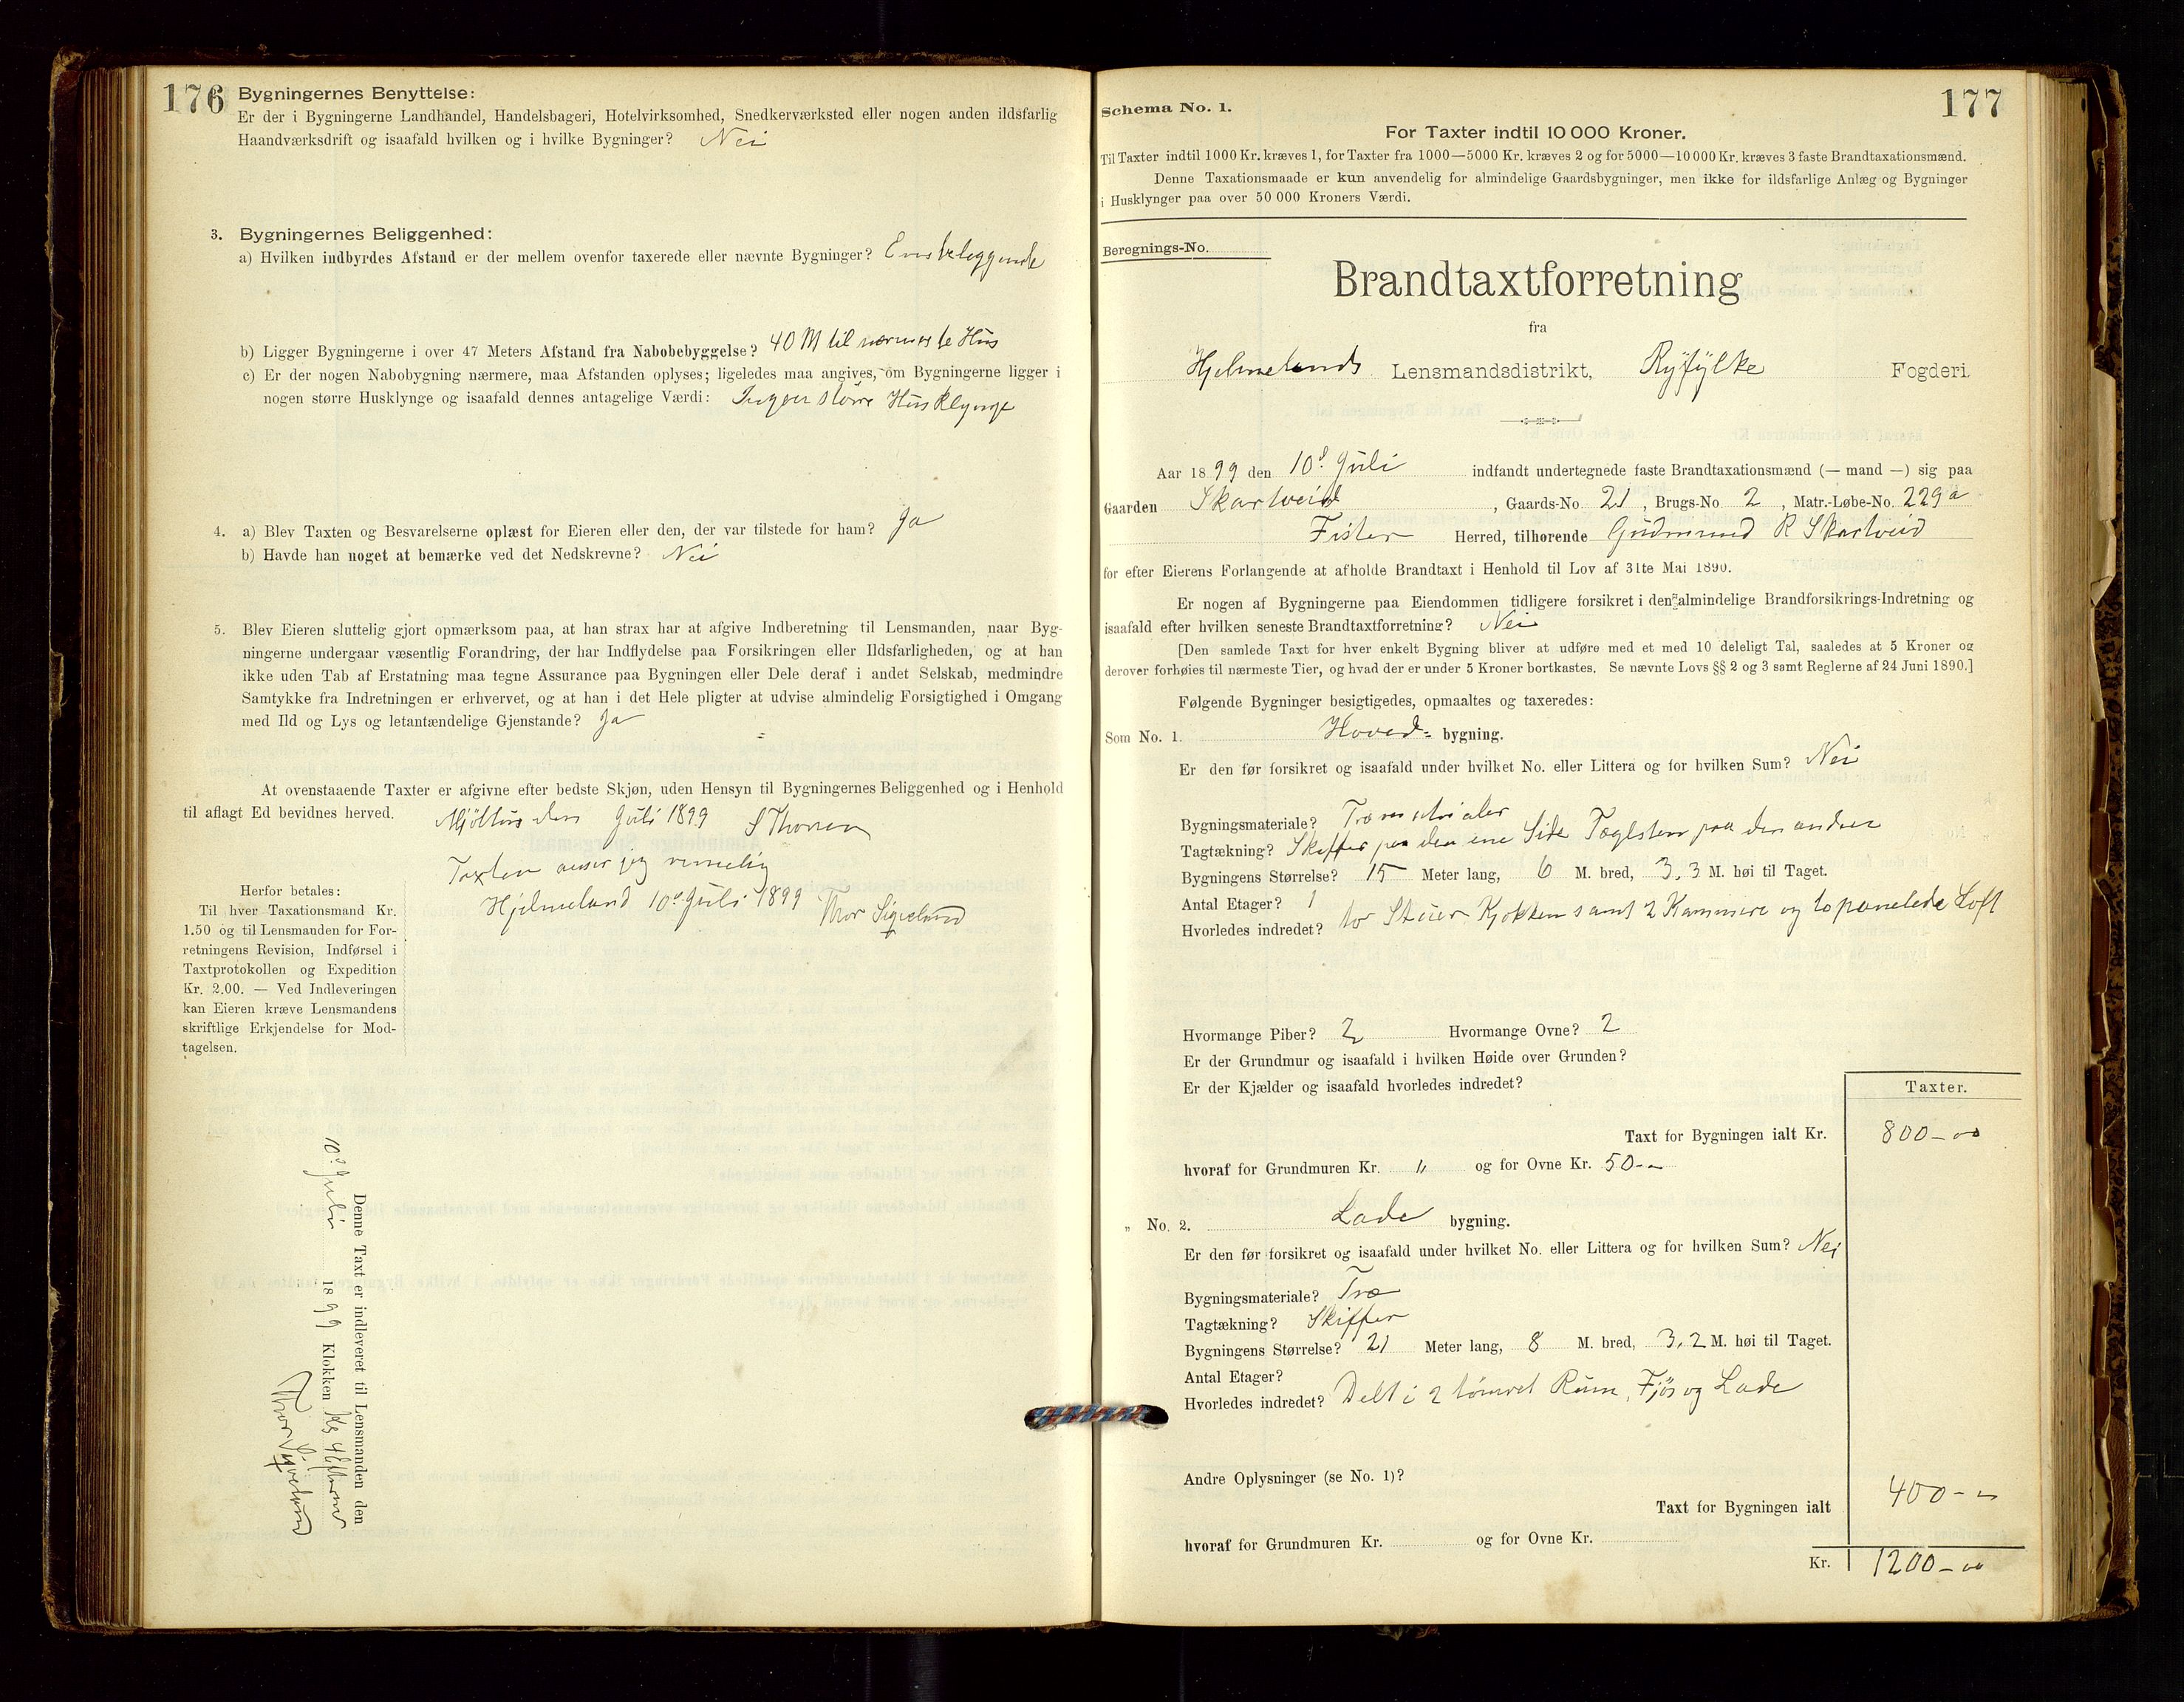 176
Bygningernes Benyttelse:
Er der i Bygningerne Landhandel, Handelsbageri, Hotelvirksomhed, Snedkerværksted eller nogen anden ildsfarlig
Haandværksdrift og isaafald hvilken og i hvilke Bygninger? Nei
3. Bygningernes Beliggenhed:
a) Hvilken indbyrdes Afstand er der mellem ovenfor taxerede eller nævnte Bygninger?
b) Ligger Bygningerne i over 47 Meters Afstand fra Nabobebyggelse? 40 M til nærmeste Hus
c) Er der nogen Nabobygning nærmere, maa Afstanden oplyses; ligeledes maa angives, om Bygningerne ligger i
nogen større Husklynge og isaafald dennes antagelige Værdi: Ingen större Husklynge
4. a) Blev Taxten og Besvarelserne oplæst for Eieren eller den, der var tilstede for ham? Ja
b) Havde han noget at bemærke ved det Nedskrevne? Nei
5. Blev Eieren sluttelig gjort opmærksom paa, at han strax har at afgive Indberetning til Lensmanden, naar Byg-
ningerne undergaar væsentlig Forandring, der har Indflydelse paa Forsikringen eller Ildsfarligheden, og at han
ikke uden Tab af Erstatning maa tegne Assurance paa Bygningen eller Dele deraf i andet Selskab, medmindre
Samtykke fra Indretningen er erhvervet, og at han i det Hele pligter at udvise almindelig Forsigtighed i Omgang
med Ild og Lys og letantændelige Gjenstande? Ja
At ovenstaaende Taxter er afgivne efter bedste Skjøn, uden Hensyn til Bygningernes Beliggenhed og i Henhold
til aflagt Ed bevidnes herved. den Juli 1899
Taxten anser jeg rimelig
Hjelmeland 10de Juli 1899 Thor Sigvelund
Herfor betales:
Til hver Taxationsmand Kr.
1.50 og til Lensmanden for For-
retningens Revision, Indførsel i
Taxtprotokollen og Expedition
Kr. 2.00. — Ved Indleveringen
kan Eieren kræve Lensmandens
skriftlige Erkjendelse for Mod-
tagelsen.
Denne Taxt er indleveret til Lensmanden den
10de Juli 1899 Klokken 4 Efterm
Thor Sigvelund
177
Schema No. 1.
For Taxter indtil 10 000 Kroner.
Til Taxter indtil 1000 Kr. kræves 1, for Taxter fra 1000—5000 Kr. kræves 2 og for 5000—10 000 Kr. kræves 3 faste Brandtaxationsmænd.
Denne Taxationsmaade er kun anvendelig for almindelige Gaardsbygninger, men ikke for ildsfarlige Anlæg og Bygninger
i Husklynger paa over 50 000 Kroners Værdi.
Beregnings-No.
Brandtaxtforretning
fra
Hjelmelands Lensmandsdistrikt, Ryfylke Fogderi.
Aar 1899 den 10de Juli indfandt undertegnede faste Brandtaxationsmænd (— mand —) sig paa
Gaarden Skartveid, Gaards-No. 21, Brugs-No. 2, Matr.-Løbe-No. 229a
Fister Herred, tilhørende Gudmund R Skartveid
for efter Eierens Forlangende at afholde Brandtaxt i Henhold til Lov af 31te Mai 1890.
Er nogen af Bygningerne paa Eiendommen tidligere forsikret i den almindelige Brandforsikrings-Indretning og
isaafald efter hvilken seneste Brandtaxtforretning? Nei
[Den samlede Taxt for hver enkelt Bygning bliver at udføre med et med 10 deleligt Tal, saaledes at 5 Kroner og
derover forhøies til nærmeste Tier, og hvad der er under 5 Kroner bortkastes. Se nævnte Lovs §§ 2 og 3 samt Reglerne af 24 Juni 1890.]
Følgende Bygninger besigtigedes, opmaaltes og taxeredes:
Som No. 1. Hoved= bygning.
Er den før forsikret og isaafald under hvilket No. eller Littera og for hvilken Sum? Nei
Bygningsmateriale? Træmaterialer
Tagtækning? Skiffer paa den ene Side Taglsten paa den anden
Bygningens Størrelse? 15 Meter lang, 6 M. bred, 3,3 M. høi til Taget.
Antal Etager? 1
Hvorledes indredet? to Stuer Kjökken samt 2 Kammere og to panelede Loft
Hvormange Piber? 2 Hvormange Ovne? 2
Er der Grundmur og isaafald i hvilken Høide over Grunden?
Er der Kjælder og isaafald hvorledes indredet?
Taxter.
Taxt for Bygningen ialt Kr. 800-00
hvoraf for Grundmuren Kr. " og for Ovne Kr. 50--
" No. 2. Lade bygning.
Er den før forsikret og isaafald under hvilket No. eller Littera og for hvilken Sum? Nei
Bygningsmateriale? Træ
Tagtækning? Skiffer
Bygningens Størrelse? 21 Meter lang, 8 M. bred, 3,2 M. høi til Taget.
Antal Etager?
Hvorledes indredet? Delt i 2 tömret Rum, Fjös og Lade
Andre Oplysninger (se No. 1)?
Taxt for Bygningen ialt 400--
hvoraf for Grundmuren Kr. og for Ovne Kr.
Kr. 1200-00